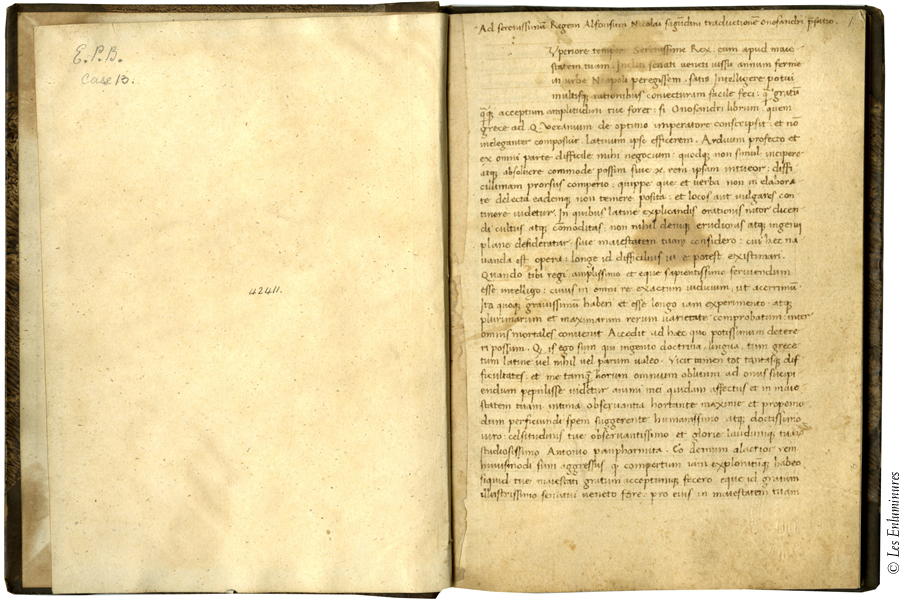 E.P.B.
Case 13.
42411.
Ad serenissimū Regem Alfonsum Nicolai sagūdini traductionē Onosandri p̄fatio.
yperiore tempore Serenissime Rex: cum apud maie
statem tuam. Incliti senati veneti iussu annum ferme
in urbe Neapoli peregissem. satis Intelligere potui
multisq rationibus coniecturam facile feci: q̄ gratū
acceptum amplitudini tue foret: si Onosandri librum, quem
grece ad Q. Veranium de optimo imperatore conscripsit: et nō
ineleganter composuit: latinum ipse efficerem. Arduum profecto et
ex omni parte difficile mihi negocium: quodq non simul incipere
atq absoluere commode possim siue rem ipsam intueor: diffi
cillimam prorsus comperio: quippe que et verba non in elabora
te delecta eademq non temere posita: et locos aut vulgares con
tinere uidetur. In quibus latine explicandis orationis nitor dicen
di cultus atq cōmoditas: non nihil deniq eruditionis atq ingenij
plane desideratur. siue maiestatem tuam considero: cui hec na
uanda est opera: longe id difficilius potest existimari.
Quando tibi regi amplissimo et eque sapientissimo seruiendum
esse intelligo: cuius in omni re exactum iudicium, ut acerrimū.
Ita quoq grauissimū haberi et esse longo iam experimento atq
plurimarum et maximarum rerum uarietate comprobatum: inter
omnis mortales conuenit. Accedit ad hec quo potissimum deterre
ri possum. Q is ego sum qui ingenio doctrina lingua, tum grece
tum latine uel nihil uel parum ualeo. Vicit tamen tot tantasq dif
ficultates: et me tamq̄ horum omnium oblitum ad onus suscipi
endum pepulisse uidetur animi mei quidam affectus et in maie
statem tuam intima obseruantia hortante maxime et propemo
dum perficiundi spem suggerente humanissimo atq doctissimo
uiro: celsitudinis tue obseruantissimo et glorie laudumq tuarū
studiosissimo Antonio panphormita. Eo demum alacrior rem
huiusmodi sum aggressus q compertum iam exploratūq habeo
siquid tue maiestati gratum acceptumq fecero eque id gratum
illustrissimo senatui veneto fore: pro eius in maiestatem tuam
© Les Enluminures